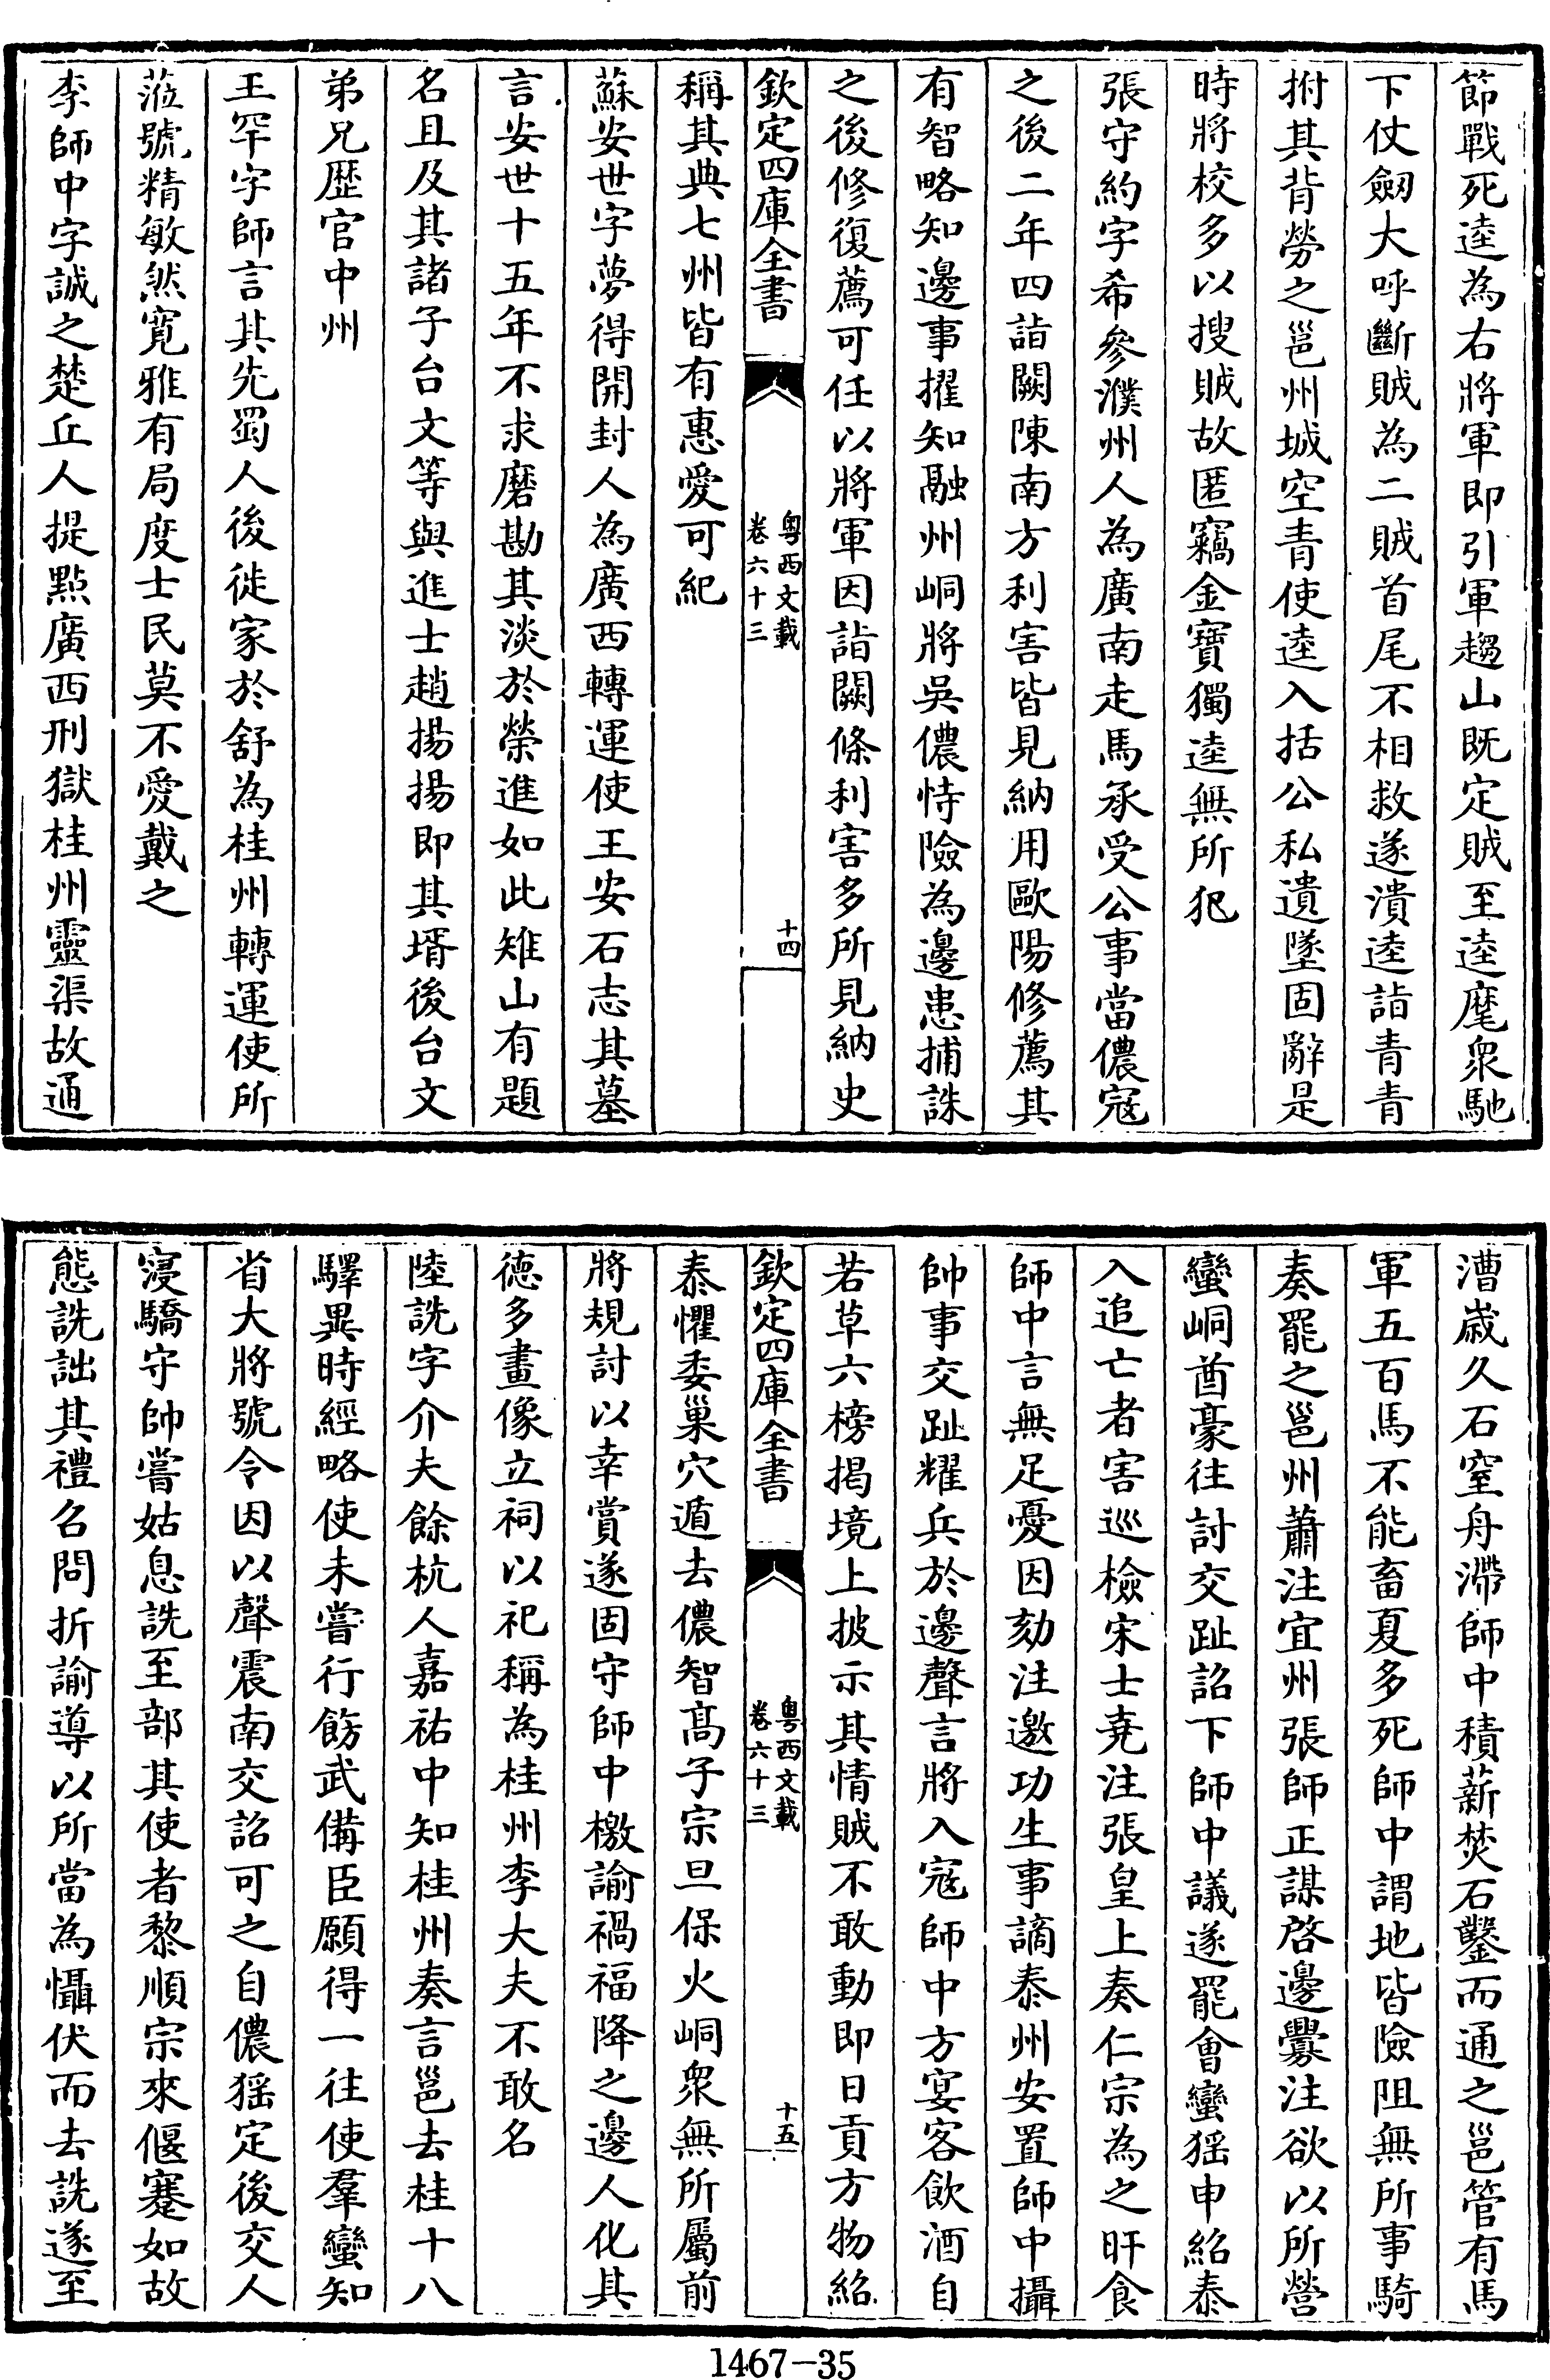 節戰死逵為右將軍即引軍趨山既定賊至逵麾衆馳
下仗劒大呼斷賊為二賊首尾不相救遂潰逵詣青青
拊其背勞之邕州城空青使逵入括公私遺墜固辭是
時將校多以搜賊故匿竊金寶獨逵無所犯
張守約字希參濮州人為廣南走馬承受公事當儂寇
之後二年四詣闕陳南方利害皆見納用歐陽修薦其
有智略知邊事擢知融州峒將吳儂恃險為邊患捕誅
之後修復薦可任以將軍因詣闕條利害多所見納史
欽定四庫全書
粤西文載
卷六十三
十四
稱其典七州皆有惠愛可紀
蘇安世字夢得開封人為廣西轉運使王安石志其墓
言安世十五年不求磨勘其淡於榮進如此雉山有題
名且及其諸子台文等與進士趙揚揚即其壻後台文
弟兄歴官中州
王罕字師言其先蜀人後徙家於舒為桂州轉運使所
蒞號精敏然寛雅有局度士民莫不愛戴之
李師中字誠之楚丘人提點廣西刑獄桂州靈渠故通
漕嵗久石窒舟滯師中積薪焚石鑿而通之邕管有馬
軍五百馬不能畜夏多死師中謂地皆險阻無所事騎
奏罷之邕州蕭注宜州張師正謀啓邊釁注欲以所營
蠻峒酋豪往討交趾詔下師中議遂罷會蠻猺申紹泰
入追亡者害巡檢宋士堯注張皇上奏仁宗為之旰食
師中言無足憂因劾注邀功生事謫泰州安置師中攝
帥事交趾耀兵於邊聲言將入寇師中方宴客飲酒自
若草六榜揭境上披示其情賊不敢動即日貢方物紹
欽定四庫全書
粤西文載
卷六十三
十五
泰懼委巢穴遁去儂智髙子宗旦保火峒衆無所屬前
將規討以幸賞遂固守師中檄諭禍福降之邊人化其
德多畫像立祠以祀稱為桂州李大夫不敢名
陸詵字介夫餘杭人嘉祐中知桂州奏言邕去桂十八
驛異時經略使未嘗行飭武備臣願得一往使羣蠻知
省大將號令因以聲震南交詔可之自儂猺定後交人
寖驕守帥嘗姑息詵至部其使者黎順宗來偃蹇如故
態詵詘其禮召問折諭導以所當為懾伏而去詵遂至
1467-35